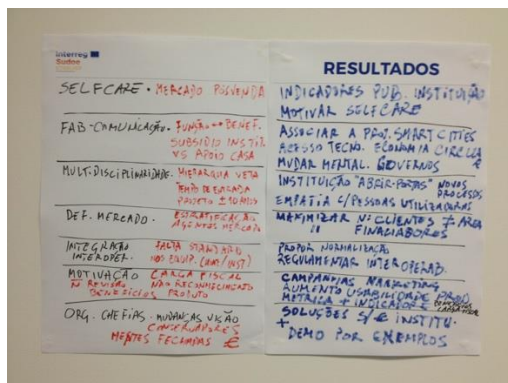 Interreg
Sudoe
SELFCARE. MERCADO POSVENDA
FAB-COMUNICAÇÃO. FUNÇÃO ↔ BENEF.
SUBSIDIO INSTIT
VS APOIO CASA
MULTIDISCIPLINARIDADE. HIERARQUIA VETA
TEMPO DE ENTRADA
PROJETO ±
DEF. MERCADO. ESTRATIFICAÇÃO
AGENTES MERCADO
INTEGRAÇÃO FALTA STANDARD
INTEROPER. NOS EQUIP.
MOTIVAÇÃO CARGA FISCAL
REVISÃO NÃO RECONHECIMENTO
BENEFICIOS PRODUTO
ORG. CHEFIAS. MUDANÇAS VISÃO
CONSERVADORES
MENTES FECHADAS €
RESULTADOS
INDICADORES PUB. INSTITUIÇÃO
MOTIVAR SELFCARE
ASSOCIAR A PROJ. SMART CITIES
ACESSO TECNO. ECONOMIA CIRCULAR
MUDAR MENTAL. GOVERNOS €
INSTITUIÇÃO "ABRIR-PORTAS" NOVOS
PROCESSOS
EMPATIA C/PESSOAS UTILIZADORAS
MAXIMIZAR Nº CLIENTES ≠ AREA
" FINACIADORES
PROPOR NORMALIZAÇÃO
REGULAMENTAR INTEROPERAB.
CAMPANHAS MARKETING
AUMENTO USABILIDADE PROD.
METRICA + INDICADORES
SOLUÇÕES S/€ INSTITU.
+
DEMO POR EXEMPLOS